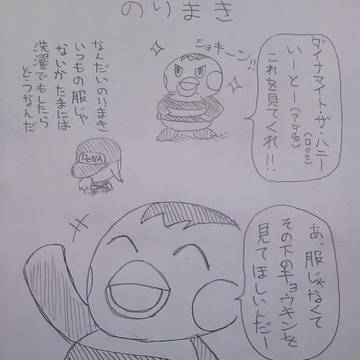 のりまき
ダイナマイト・ザ・ハニー
いーとー(アダ名)(ロッテ)
これを見てくれ!!
ジョキーン!!
なんだいのりまき
いつもの服じゃ
ないかたまには
洗濯でもしたら
どうなんだ
DeNA
あ、服じゃなくて
その下のキョウキンを
見てほしいんだー